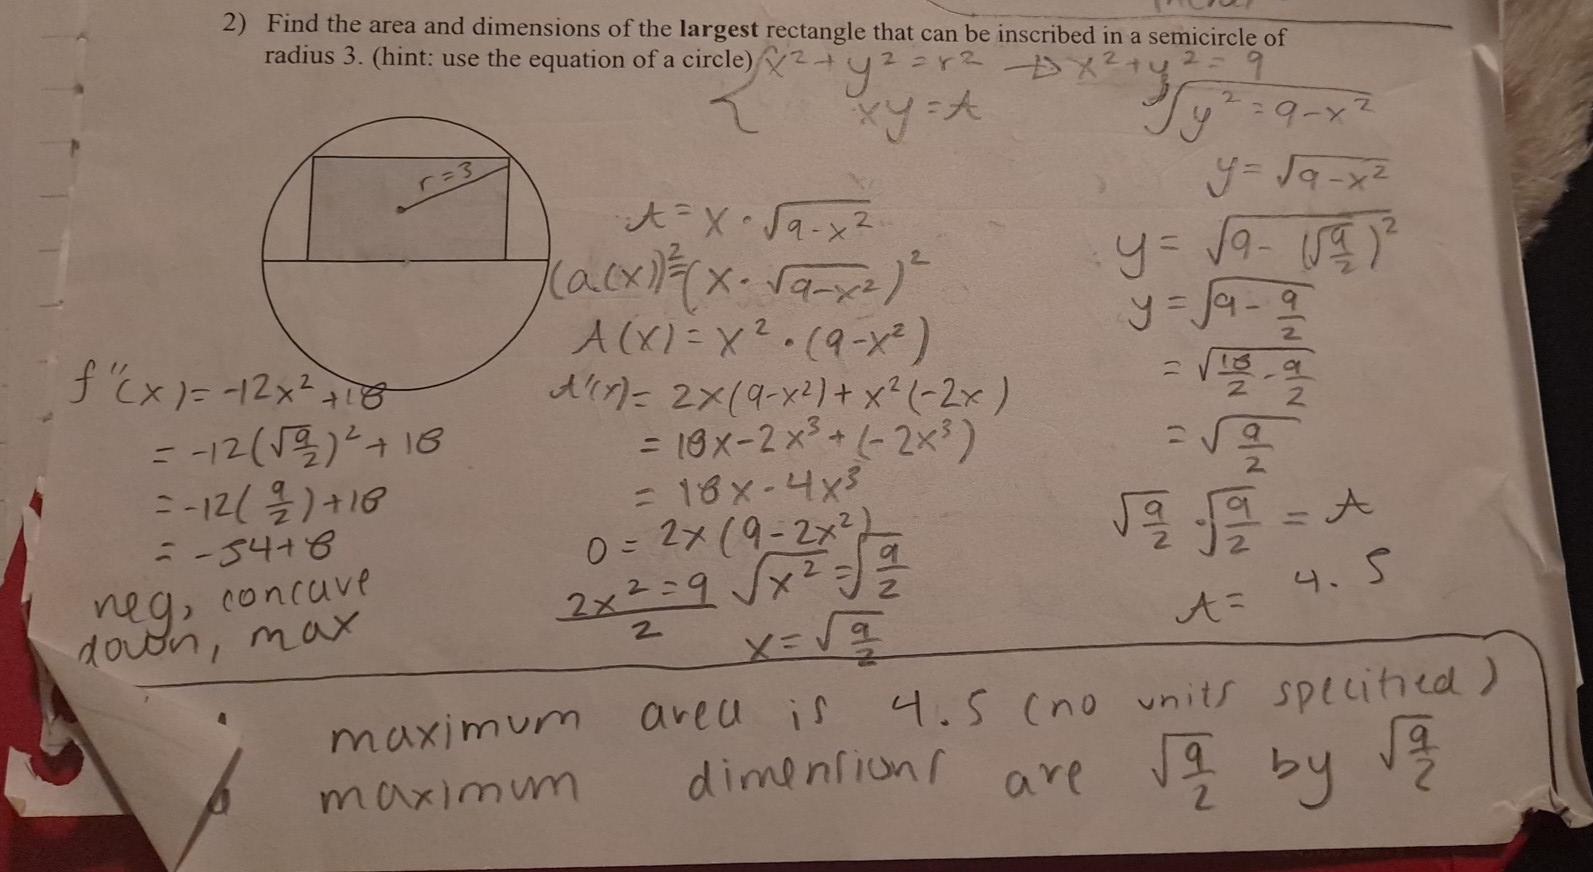 2) Find the area and dimensions of the largest rectangle that can be inscribed in a semicircle of
radius 3. (hint: use the equation of a circle)
x² + y² = r² → x² + y² = 9
xy = A
√y² = 9-x²
y = √9-x²
r=3
A = x · √9-x²
(a(x))² = (x · √9-x²)²
A(x) = x² · (9-x²)
A'(x) = 2x(9-x²) + x²(-2x)
= 18x - 2x³ + (-2x³)
= 18x - 4x³
0 = 2x(9-2x²)
2x² = 9
2
√x² = √9/2
x = √9/2
y = √9 - (√9/2)²
y = √9 - 9/2
= √18/2 - 9/2
= √9/2
√9/2 · √9/2 = A
A = 4.5
f''(x) = -12x² + 18
= -12(√9/2)² + 18
= -12(9/2) + 18
= -54 + 8
neg, concave
down, max
maximum area is 4.5 (no units specified)
maximum dimensions are √9/2 by √9/2